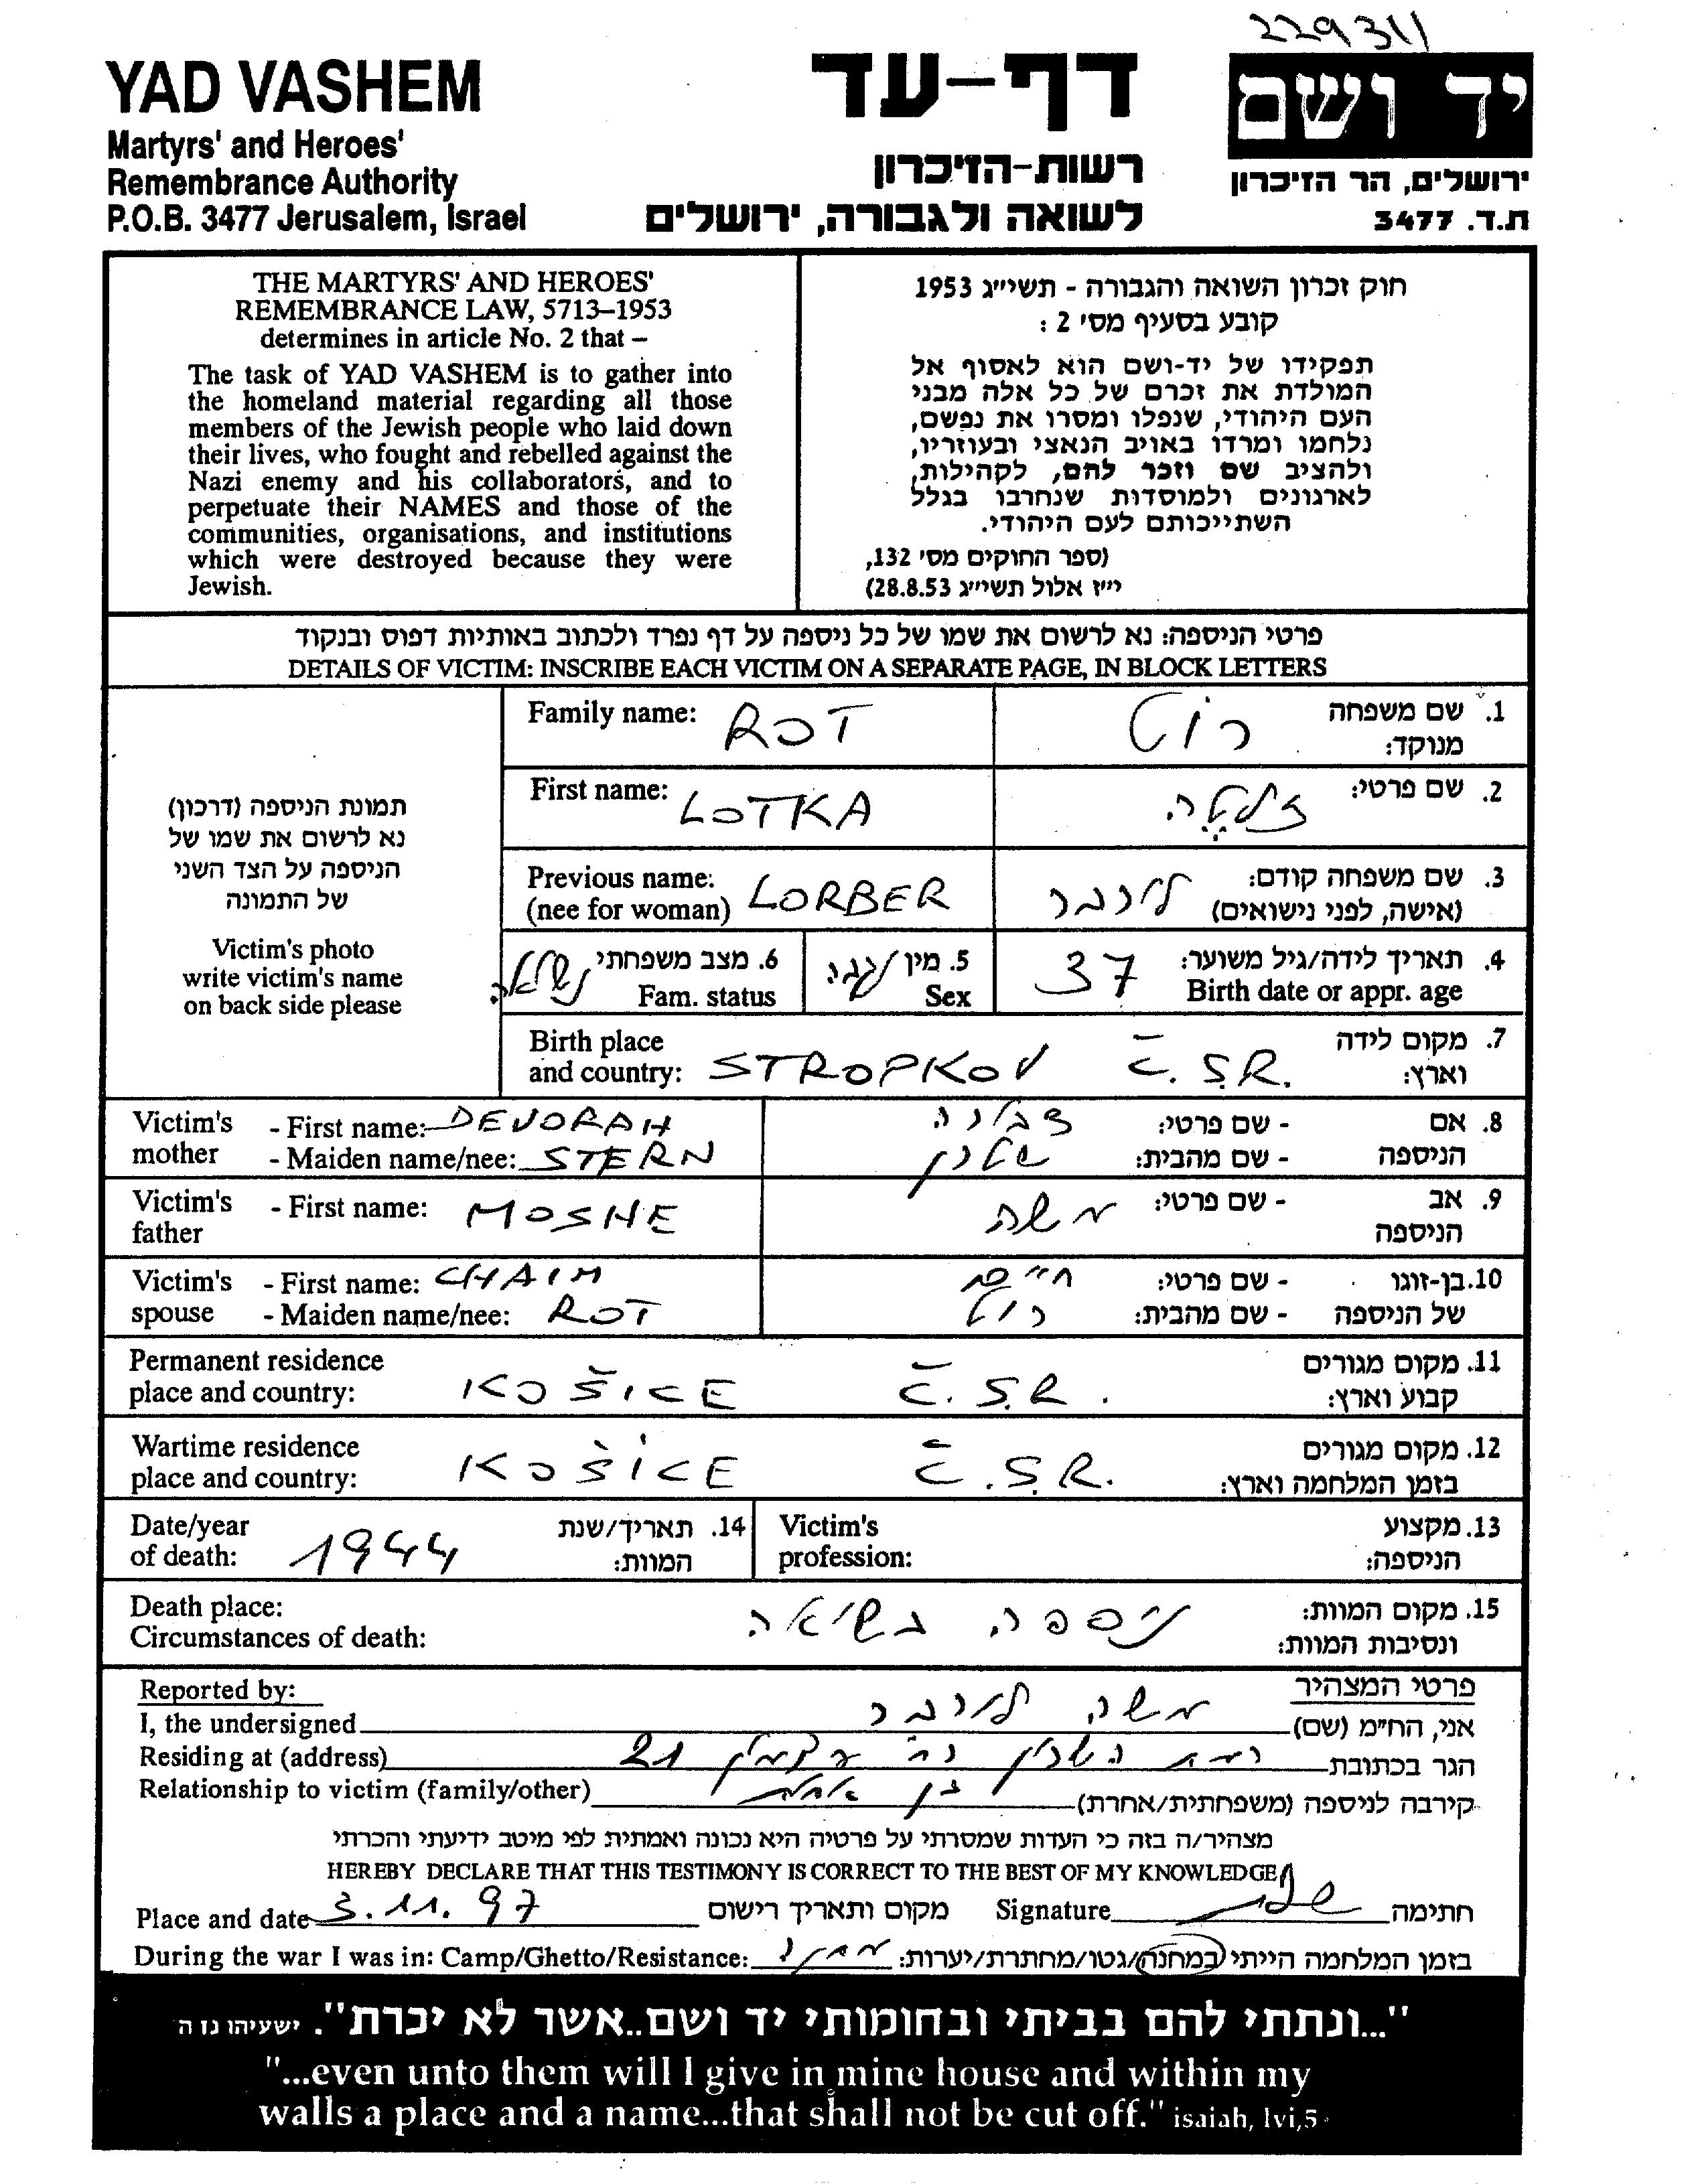 229311
YAD VASHEM
Martyrs' and Heroes'
Remembrance Authority
P.O.B. 3477 Jerusalem, Israel
דף-עד
רשות-הזיכרון
לשואה ולגבורה, ירושלים
יד ושם
ירושלים, הר הזיכרון
ת.ד. 3477
THE MARTYRS' AND HEROES'
REMEMBRANCE LAW, 5713–1953
determines in article No. 2 that –
The task of YAD VASHEM is to gather into
the homeland material regarding all those
members of the Jewish people who laid down
their lives, who fought and rebelled against the
Nazi enemy and his collaborators, and to
perpetuate their NAMES and those of the
communities, organisations, and institutions
which were destroyed because they were
Jewish.
חוק זכרון השואה והגבורה - תשי״ג 1953
קובע בסעיף מס' 2 :
תפקידו של יד-ושם הוא לאסוף אל
המולדת את זכרם של כל אלה מבני
העם היהודי, שנפלו ומסרו את נפשם,
נלחמו ומרדו באויב הנאצי ובעוזריו,
ולהציב שם וזכר להם, לקהילות,
לארגונים ולמוסדות שנחרבו בגלל
השתייכותם לעם היהודי.
(ספר החוקים מס' 132,
י״ז אלול תשי״ג 28.8.53)
פרטי הניספה: נא לרשום את שמו של כל ניספה על דף נפרד ולכתוב באותיות דפוס ובנקוד
DETAILS OF VICTIM: INSCRIBE EACH VICTIM ON A SEPARATE PAGE, IN BLOCK LETTERS
תמונת הניספה (דרכון)
נא לרשום את שמו של
הניספה על הצד השני
של התמונה
Victim's photo
write victim's name
on back side please
Family name: ROT
1. שם משפחה מנוקד: רוט
First name: LOTKA
2. שם פרטי:
Previous name: (nee for woman) LORBER
3. שם משפחה קודם: (אישה, לפני נישואים) לורבר
4. תאריך לידה/גיל משוער: Birth date or appr. age 37
5. מין Sex נקבה
6. מצב משפחתי Fam. status נשואה
Birth place and country: STROPKOV Č.S.R.
7. מקום לידה וארץ:
Victim's mother - First name: DEVORAH
- Maiden name/nee: STERN
8. אם הניספה - שם פרטי: דבורה
- שם מהבית: שטרן
Victim's father - First name: MOSHE
9. אב הניספה - שם פרטי: משה
Victim's spouse - First name: CHAIM
- Maiden name/nee: ROT
10. בן-זוגו של הניספה - שם פרטי: חיים
- שם מהבית: רוט
Permanent residence place and country: KOŠICE Č.S.R.
11. מקום מגורים קבוע וארץ:
Wartime residence place and country: KOŠICE Č.S.R.
12. מקום מגורים בזמן המלחמה וארץ:
Date/year of death: 1944
14. תאריך/שנת המוות:
Victim's profession:
13. מקצוע הניספה:
Death place:
Circumstances of death: ניספה בשואה
15. מקום המוות:
ונסיבות המוות:
Reported by: פרטי המצהיר
I, the undersigned משה לורבר אני, הח״מ (שם)
Residing at (address) רמת השרון 21 הגר בכתובת
Relationship to victim (family/other) בן קירבה לניספה (משפחתית/אחרת)
מצהיר/ה בזה כי העדות שמסרתי על פרטיה היא נכונה ואמתית לפי מיטב ידיעתי והכרתי
HEREBY DECLARE THAT THIS TESTIMONY IS CORRECT TO THE BEST OF MY KNOWLEDGE
Place and date 3.11.97 מקום ותאריך רישום Signature חתימה
During the war I was in: Camp/Ghetto/Resistance: בזמן המלחמה הייתי במחנה/גטו/מחתרת/יערות:
"...ונתתי להם בביתי ובחומותי יד ושם..אשר לא יכרת". ישעיהו נו ה
"...even unto them will I give in mine house and within my
walls a place and a name...that shall not be cut off." isaiah, lvi,5